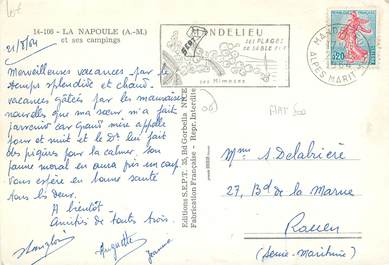 14-106 - LA NAPOULE (A.-M.)
et ses campings
21/8/64
Merveilleuses vacances par le
temps splendide et chaud.
vacances gâtées par les mauvaises
nouvelles que ma sœur m'a fait
parvenir car Grand mère appelle
jour et nuit et le Dr lui fait
des piqûres pour la calmer, son
pauvre moral en aura pris un coup.
Vous espère en bonne santé
tous les deux.
A bientôt
Amitiés de toutes trois.
Huguette
Jeanne
Editions S.E.P.T. 35, Bd de Cybelle NICE
Fabrication Française - Repr. Interdite
MANDELIEU
SES PLAGES
DE SABLE FIN
ses Mimosas
(06)
MANDELIEU
ALPES MARIT
0,20
Mme S. Delabrière
27, Bd de la Marne
Rouen
(Seine-Maritime)